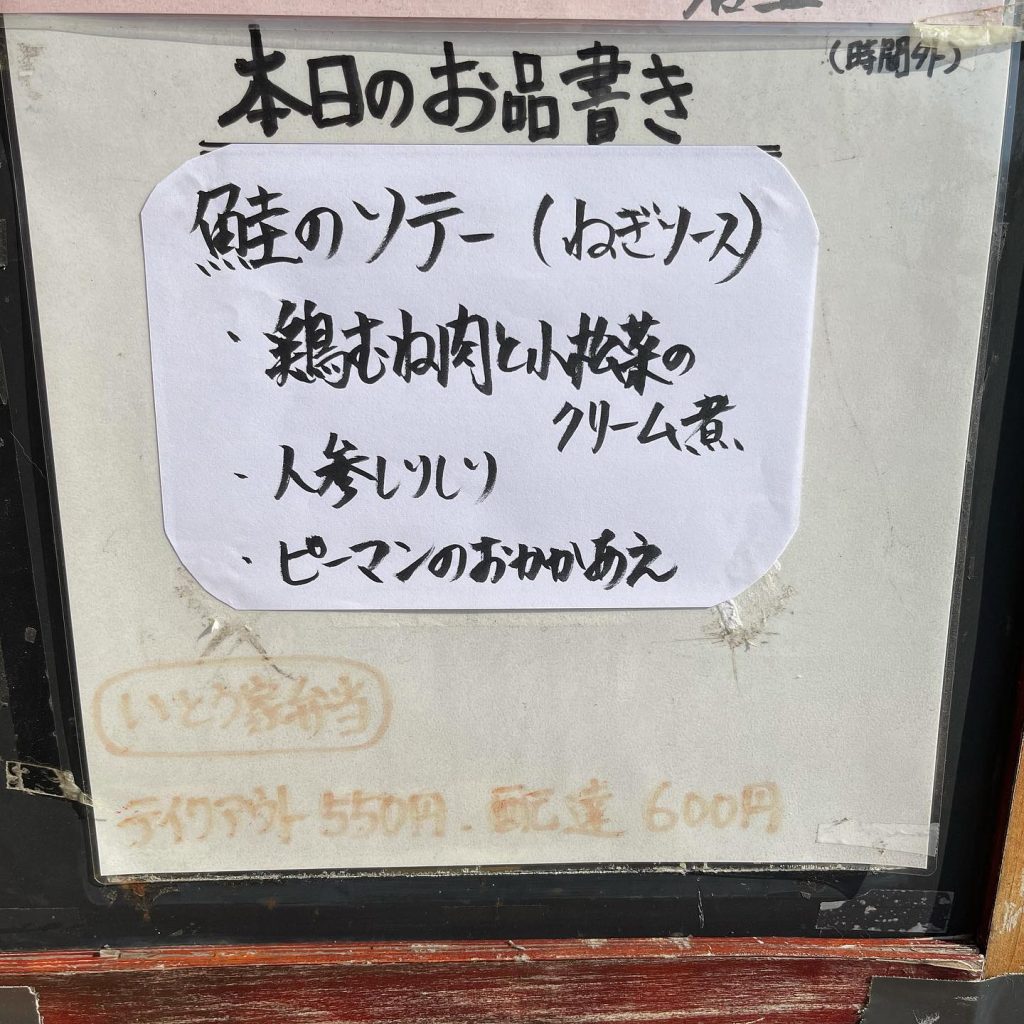 (時間外)
本日のお品書き
鮭のソテー(ねぎソース)
・鶏むね肉と小松菜の
クリーム煮
・人参しりしり
・ピーマンのおかかあえ
いとう家弁当
テイクアウト550円.配達600円